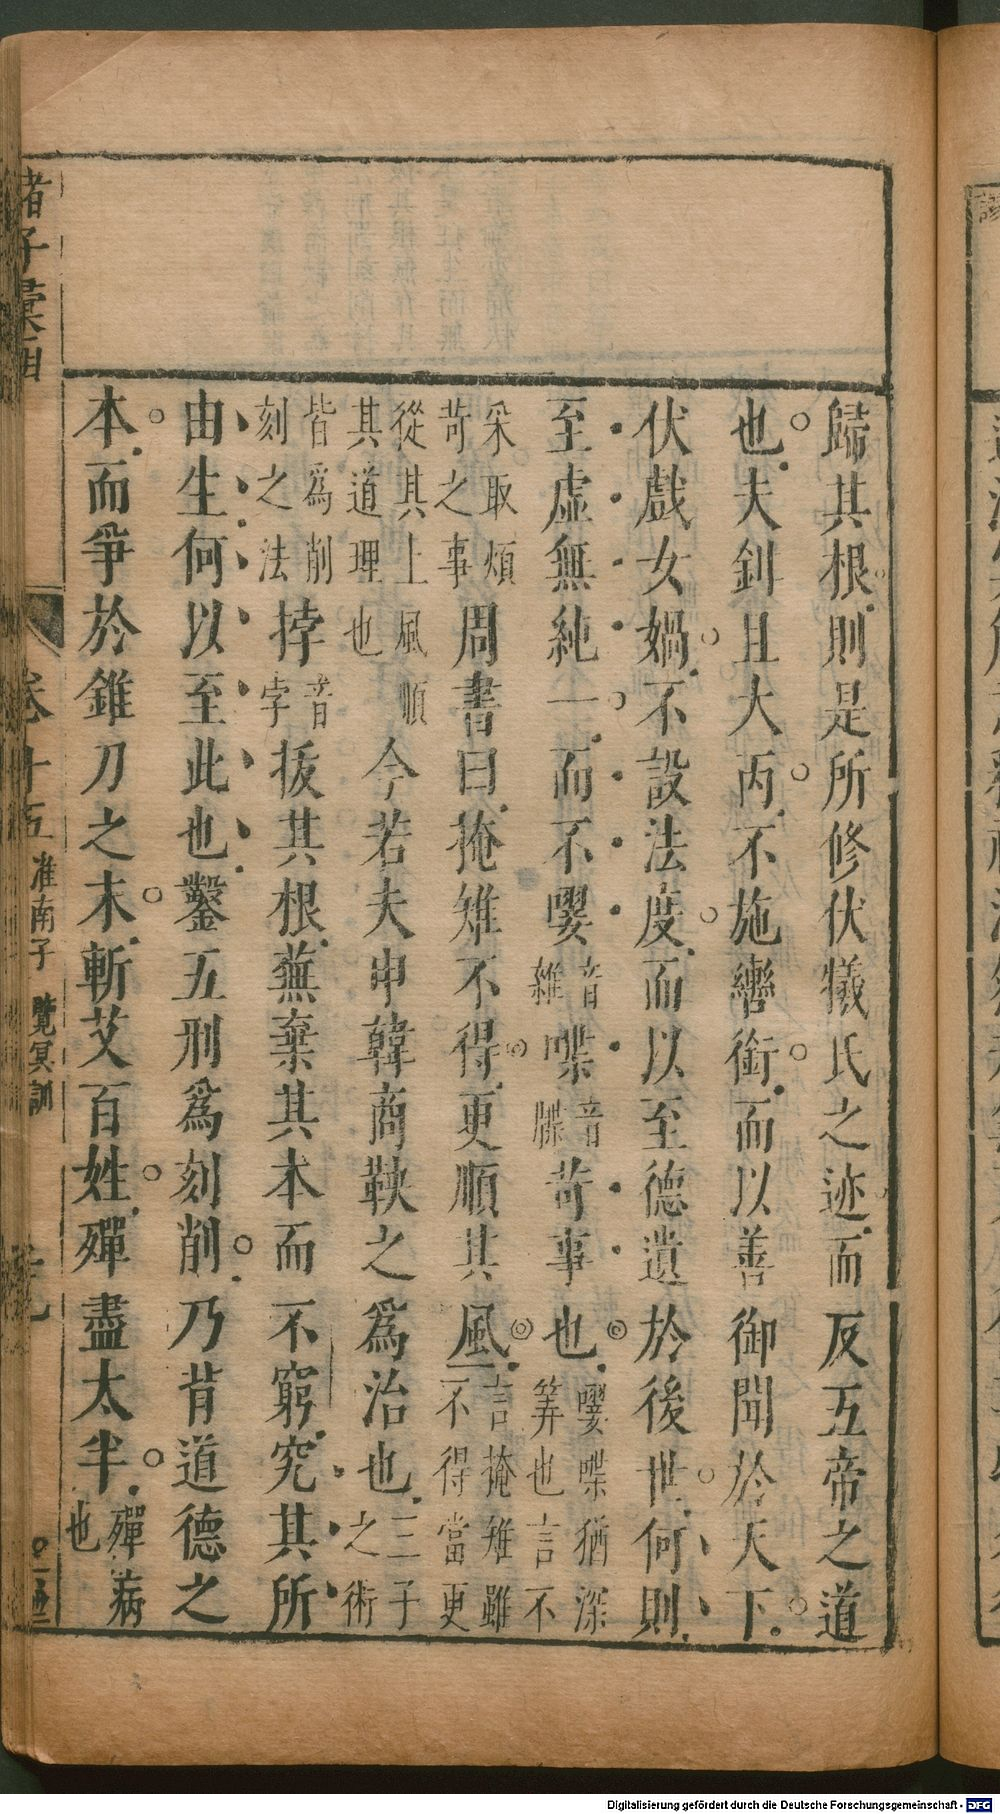 歸其根則是所修伏犧氏之迹而反五帝之道
也夫鉗且大丙不施轡銜而以善御聞於天下
伏戲女媧不設法度而以至德遺於後世何則
至虛無純一而不嘤音雜喋音牒苛事也嘤喋猶深筭也言不
采取煩苛之事周書曰掩雉不得更順其風言掩雉雖不得當更
從其上風順其道理也今若夫申韓商鞅之爲治也三子之術
皆爲削刻之法挬音孛拔其根蕪棄其本而不窮究其所
由生何以至此也鑿五刑爲刻削乃背道德之
本而爭於錐刀之末斬艾百姓殫盡太半殫病也
諸子彙函
卷十五 准南子 覽冥訓
Digitalisierung gefördert durch die Deutsche Forschungsgemeinschaft - DFG